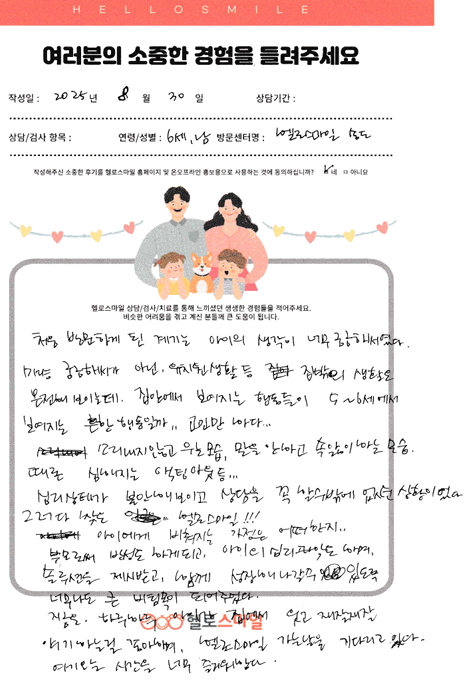 HELLOSMILE
여러분의 소중한 경험을 들려주세요
작성일 : 2025년 8 월 30 일 상담기간 :
상담/검사 항목 : 연령/성별 : 6세, 남 방문센터명 : 헬로스마일 송도
작성해주신 소중한 후기를 헬로스마일 홈페이지 및 온오프라인 홍보용으로 사용하는 것에 동의하십니까? 네 ㅁ 아니요
헬로스마일 상담/검사/치료를 통해 느끼셨던 생생한 경험들을 적어주세요.
비슷한 어려움을 겪고 계신 분들께 큰 도움이 됩니다.
처음 방문하게 된 계기는 아이의 생각이 너무 궁금해서였다.
마냥 궁금해서가 아닌, 유치원생활 등 집밖의 생활은
온전해 보이는데.. 집안에서 보여지는 행동들이 5~6세에서
보여지는 흔한 행동일까.. 고민만 하다...
소리내지않고 우는모습, 말을 안하고 속앓이 하는 모습.
때론 심해지는 액팅아웃등...
심리상태가 불안해보이고 상담을 꼭 할수밖에 없는 상황이었다
그러다 찾은 헬로스마일!!!
아이에게 비춰지는 가정은 어떠한지..
부모로써 반성도 하게되고, 아이의 심리파악도 하며,
솔루션을 제시받고, 함께 성장해나갈수 있도록
너무나도 큰 버팀목이 되어주었다.
지금은 집에서 웃고 재잘재잘
헬로스마일
얘기하는걸 좋아하며, 헬로스마일 가는날을 기다리고 있다.
여기오는 시간을 너무 즐거워한다.